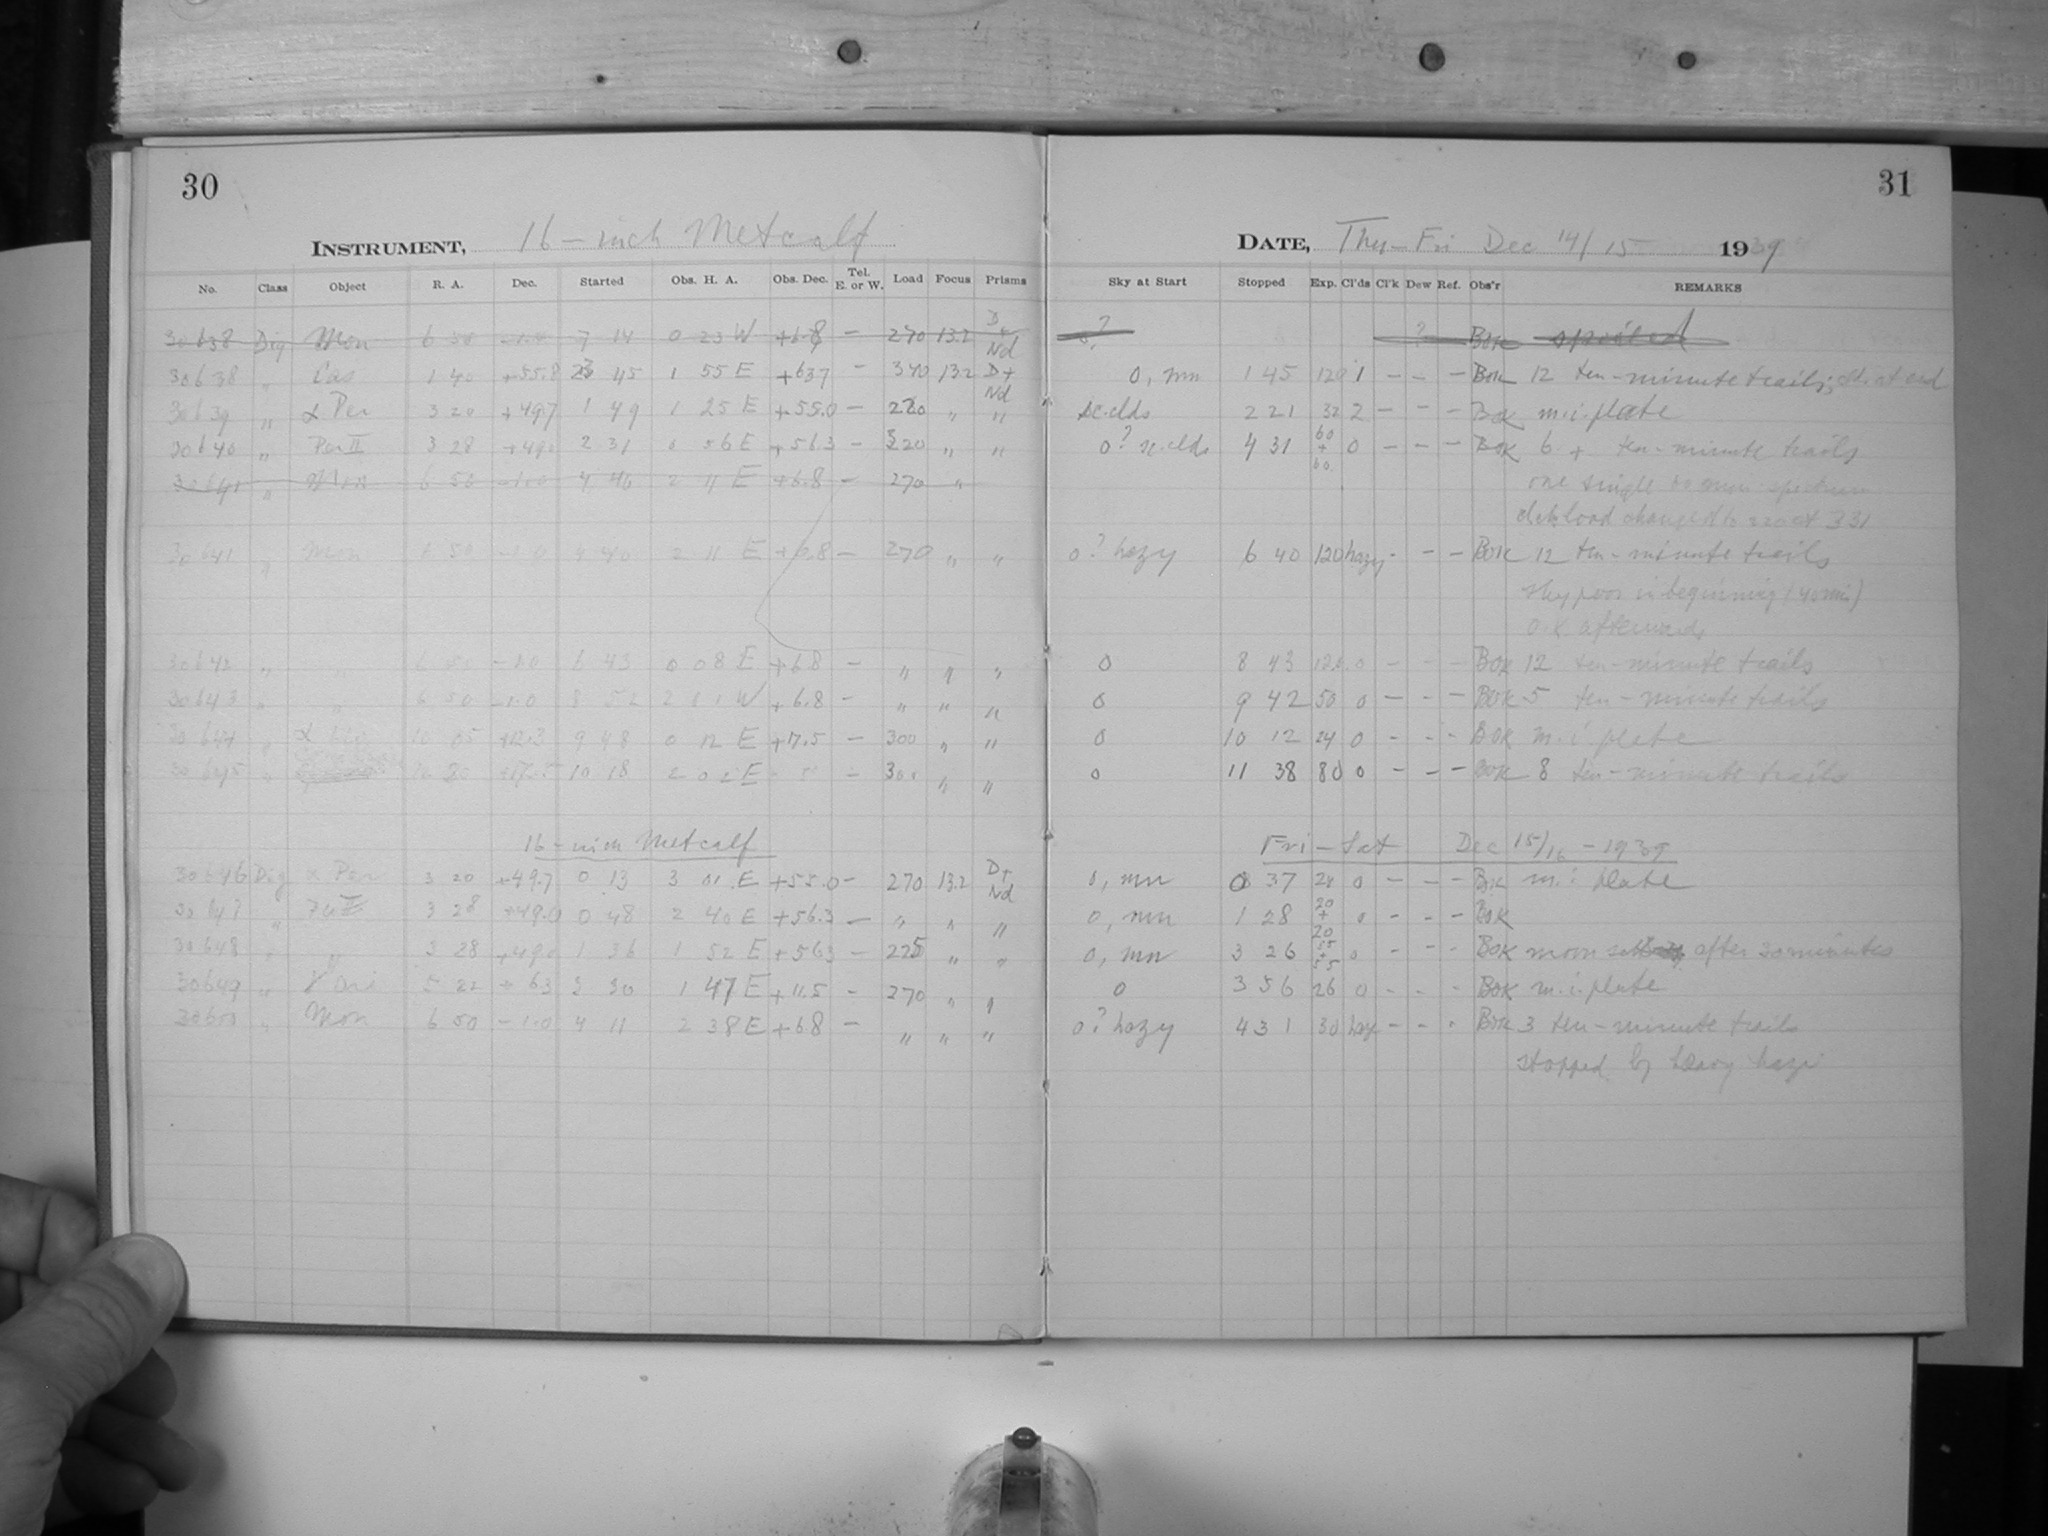 30
31
INSTRUMENT, 16-inch Metcalf
DATE, Thu-Fri Dec 14/15 1939
No. Class Object R. A. Dec. Started Obs. H. A. Obs. Dec. Tel. E. or W. Load Focus Prisms Sky at Start Stopped Exp. Cl'ds Cl'k Dew Ref. Obs'r REMARKS
30638 Dig Mon 6 50 -1.0 7 14 0 23 W +6.8 - 270 13.2 D+Nd ? Bok spoiled
30638 " Cas 1 40 +55.8 23 45 1 55 E +63.7 - 340 13.2 D+Nd 0, mn 1 45 120 1 - - - Bok 12 ten-minute trails; clds at end
30639 " α Per 3 20 +49.7 1 49 1 25 E +55.0 - 220 " " sc. clds 2 21 32 2 - - - Bok m.i. plate
30640 " Per II 3 28 +49.0 2 31 0 56 E +56.3 - 320 " " 0? sc. clds 4 31 60+60 0 - - - Bok 6 + ten-minute trails
30641 " Mon 6 50 -1.0 4 40 2 11 E +6.8 - 270 " one single 60 min spectrum
load changed to 220 at 331
30641 " Mon 6 50 -1.0 4 40 2 11 E +6.8 - 270 " " 0? hazy 6 40 120 hazy - - - Bok 12 ten-minute trails
sky poor in beginning (40 min)
o.k. afterwards
30642 " " 6 50 -1.0 6 43 0 08 E +6.8 - " " " 0 8 43 120 0 - - - Bok 12 ten-minute trails
30643 " " 6 50 -1.0 8 52 2 01 W +6.8 - " " " 0 9 42 50 0 - - - Bok 5 ten-minute trails
30644 " α Leo 10 05 +12.3 9 48 0 12 E +17.5 - 300 " " 0 10 12 24 0 - - - Bok m.i plate
30645 " 10 18 2 02 E - 300 " " 0 11 38 80 0 - - - Bok 8 ten-minute trails
16-inch Metcalf Fri-Sat Dec 15/16 - 1939
30646 Dig α Per 3 20 +49.7 0 13 3 01 E +55.0 - 270 13.2 D+Nd 0, mn 0 37 24 0 - - - Bok m.i plate
30647 " Per II 3 28 +49.0 0 48 2 40 E +56.3 - " " " 0, mn 1 28 20+20 0 - - - Bok
30648 " " 3 28 +49.0 1 36 1 52 E +56.3 - 225 " " 0, mn 3 26 55+55 0 - - - Bok moon set after 30 minutes
30649 " γ Ori 5 22 +6.3 3 30 1 47 E +11.5 - 270 " " 0 3 56 26 0 - - - Bok m.i. plate
30650 " Mon 6 50 -1.0 4 11 2 38 E +6.8 - " " " 0? hazy 4 31 30 hazy - - - Bok 3 ten-minute trails
stopped by heavy haze